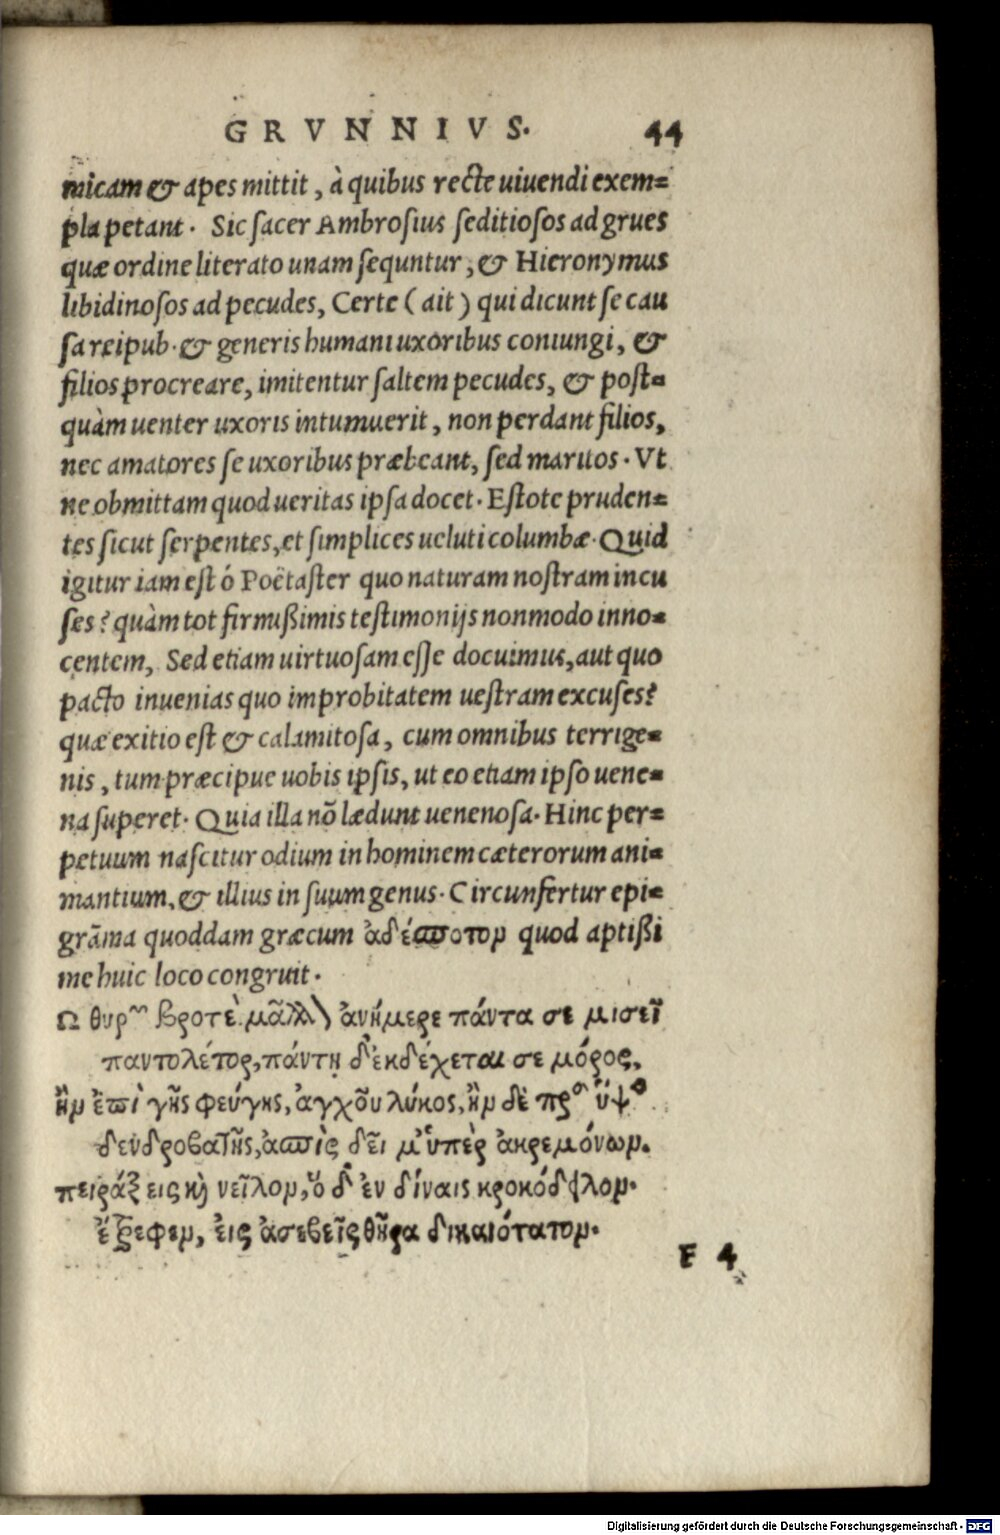 GRVNNIVS. 44
micam & apes mittit, à quibus recte uiuendi exem=
pla petant. Sic sacer Ambrosius seditiosos ad grues
quæ ordine literato unam sequntur, & Hieronymus
libidinosos ad pecudes, Certe (ait) qui dicunt se cau
sa reipub. & generis humani uxoribus coniungi, &
filios procreare, imitentur saltem pecudes, & post=
quàm uenter uxoris intumuerit, non perdant filios,
nec amatores se uxoribus præbeant, sed maritos. Vt
ne obmittam quod ueritas ipsa docet. Estote pruden=
tes sicut serpentes, et simplices ueluti columbæ. Quid
igitur iam est ó Poëtaster quo naturam nostram incu
ses? quàm tot firmißimis testimonijs nonmodo inno=
centem, Sed etiam uirtuosam esse docuimus, aut quo
pacto inuenias quo improbitatem uestram excuses?
quæ exitio est & calamitosa, cum omnibus terrige=
nis, tum præcipue uobis ipsis, ut eo etiam ipso uene=
na superet. Quia illa nõ lædunt uenenosa. Hinc per=
petuum nascitur odium in hominem cæterorum ani=
mantium, & illius in suum genus. Circunfertur epi=
grãma quoddam græcum ἀδέσποτον quod aptißi
me huic loco congruit.
Ω θυρ βροτὲ μᾶλλ) ἀνήμερε πάντα σε μισεῖ
παντολέτορ, πάντη δ' ἐκδέχεται σε μόρος,
ἢν ἐπὶ γῆς φεύγῃς, ἀγχοῦ λύκος, ἢν δὲ πρ ὕψ
δενδροβατῇς, ἀσπὶς δεῖ μ' ὑπὲρ ἀκρεμόνων.
πειράξεις κὴ νεῖλον, ὅ δ' ἐν δίναις κροκόδειλον.
ἔτρεφεν, εἰς ἀσεβεῖς θῆρα δικαιότατον.
F 4
Digitalisierung gefördert durch die Deutsche Forschungsgemeinschaft - DFG